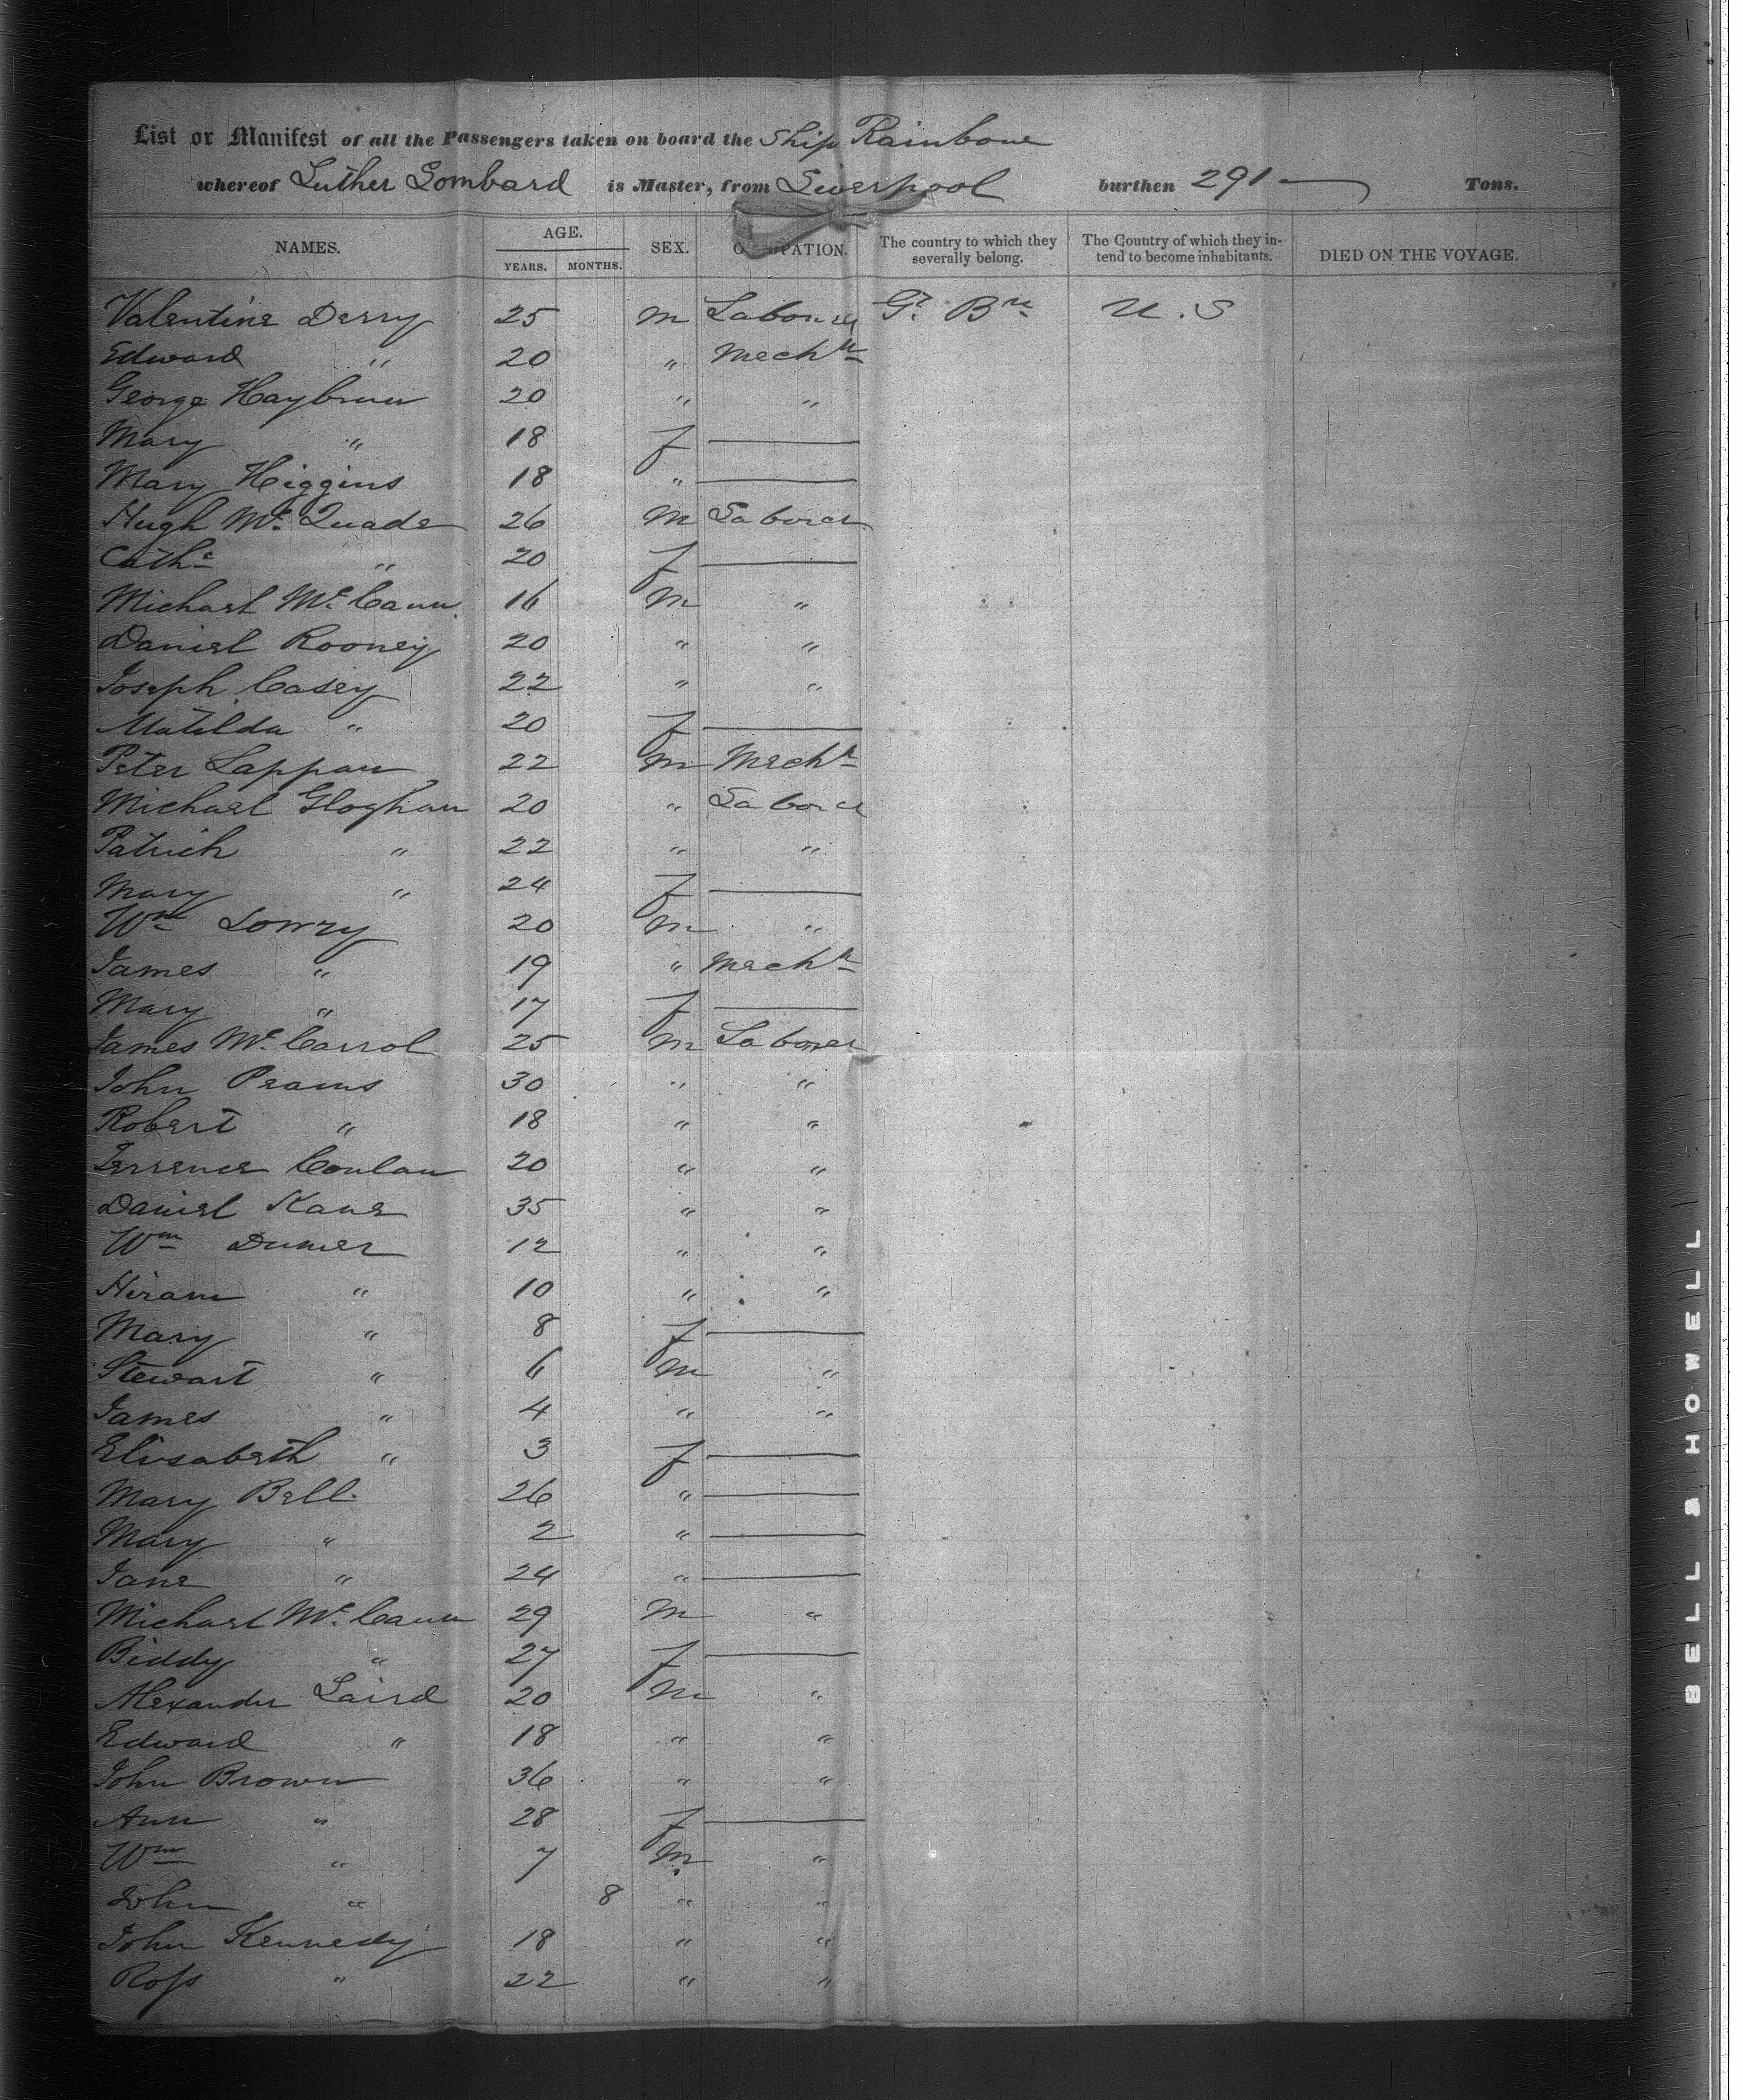 List or Manifest of all the Passengers taken on board the Ship Rainbow
whereof Luther Lombard is Master, from Liverpool burthen 291 — Tons.
NAMES. AGE. YEARS. MONTHS. SEX. OCCUPATION. The country to which they severally belong. The Country of which they intend to become inhabitants. DIED ON THE VOYAGE.
Valentine Derry 25 m Laborer Gt. Bn U.S
Edward " 20 " Mechk
George Haybrun 20 " "
Mary " 18 f —
Mary Higgins 18 " —
Hugh Mc. Quade 26 M Laborer
Cathe " 20 f —
Michael Mc. Cann 16 M "
Daniel Rooney 20 " "
Joseph Casey 22 " "
Matilda " 20 f —
Peter Lappan 22 M Mechk
Michael Gloghan 20 " Laborer
Patrick " 22 " "
Mary " 24 f —
Wm Lowry 20 m "
James " 19 " Mechk
Mary " 17 f —
James Mc. Carrol 25 M Laborer
John Peams 30 " "
Robert " 18 " "
Terrence Conlan 20 " "
Daniel Kane 35 " "
Wm Dumer 12 " "
Hiram " 10 " "
Mary " 8 f —
Stewart " 6 m "
James " 4 " "
Elisabeth " 3 f —
Mary Bell 26 " —
Mary " 2 " —
Jane " 24 " —
Michael Mc. Cann 29 M "
Biddy " 27 f —
Alexander Laird 20 M "
Edward " 18 " "
John Brown 36 " "
Ann " 28 f —
Wm " 7 M "
John " 8 " "
John Kennedy 18 " "
Ross " 22 " "
BELL & HOWELL